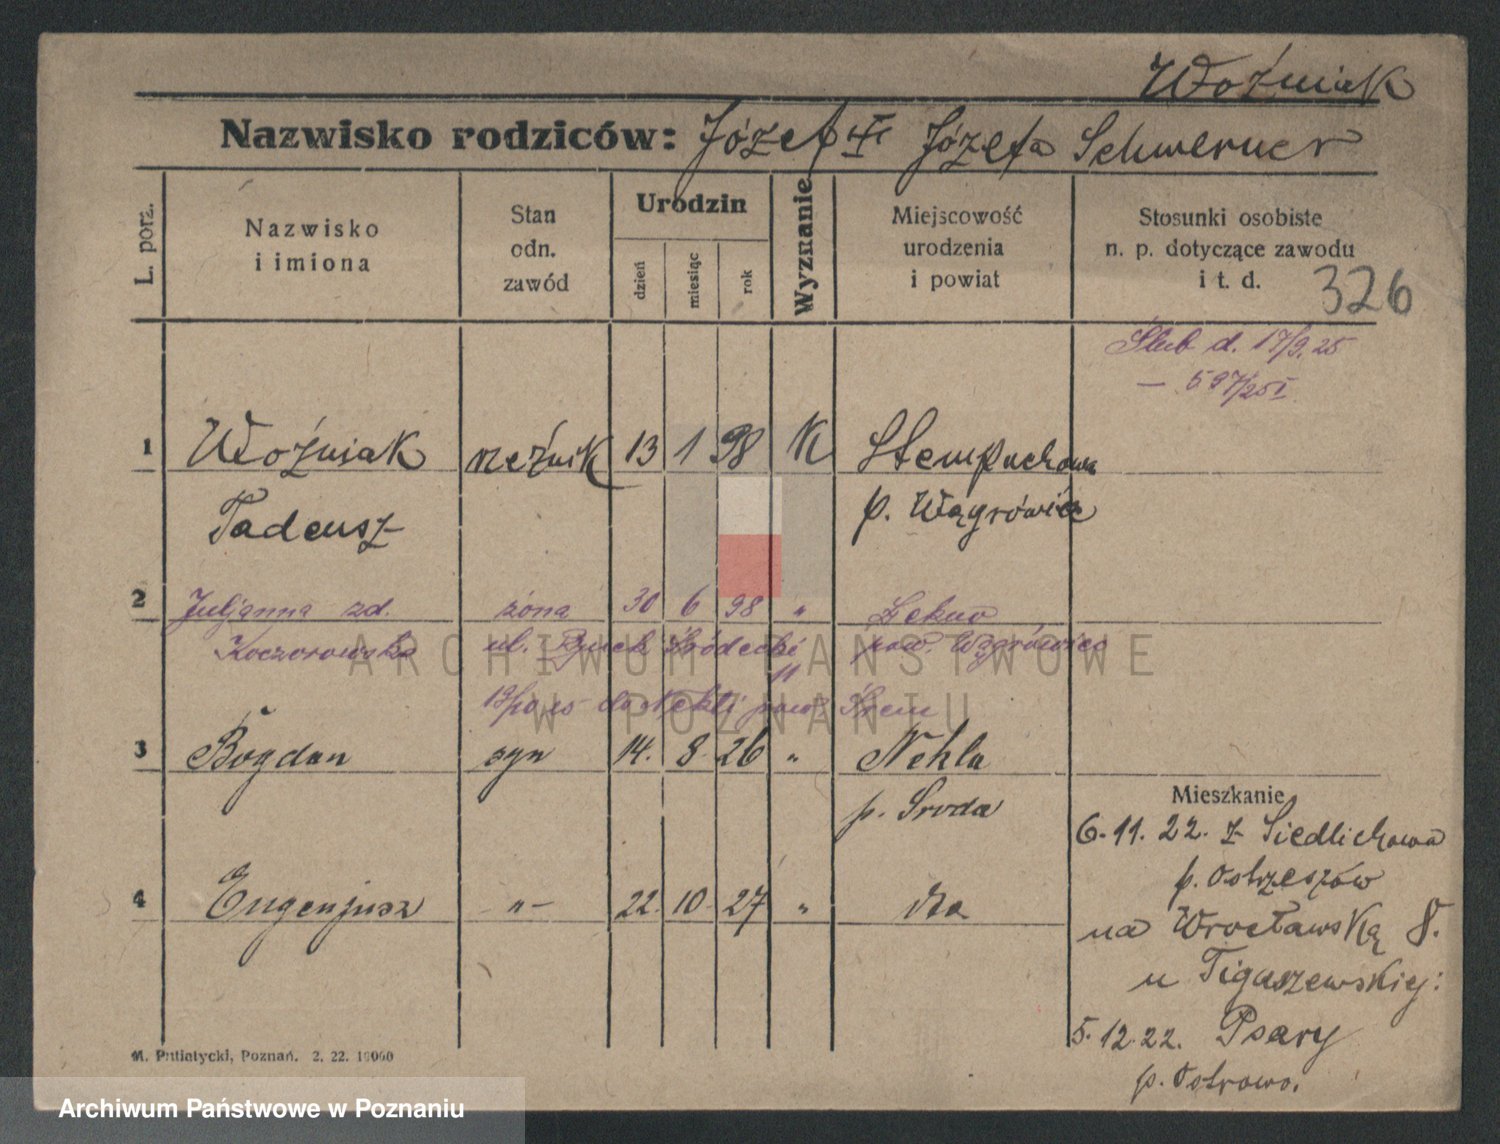 Woźniak
Nazwisko rodziców: Józef i Józefa Schwerner
L. porz.
Nazwisko
i imiona
Stan
odn.
zawód
Urodzin
dzień
miesiąc
rok
Wyznanie
Miejscowość
urodzenia
i powiat
Stosunki osobiste
n. p. dotyczące zawodu
i t. d.
326
Ślub d. 17/9. 25
— 597/25 I
1 Woźniak rzeźnik 13 1 98 K Stempuchowo
Tadeusz p. Wągrówiec
2 Juljanna zd. żona 30 6 98 " Łekno
Koczorowska ul. Rynek Śródecki pow. Wągrówiec
11
do Nekli pow. Śrem
3 Bogdan syn 14. 8. 26 " Nekla
p. Sroda
4 Eugenjusz -"- 22. 10. 27 " dta
Mieszkanie
6. 11. 22. z Siedlichowa
p. Ostrzeszów
na Wrocławską 8.
u
5. 12. 22. Psary
p. Ostrowo.
M. Putiatycki, Poznań. 2. 22. 10000
ARCHIWUM PAŃSTWOWE
W POZNANIU
Archiwum Państwowe w Poznaniu